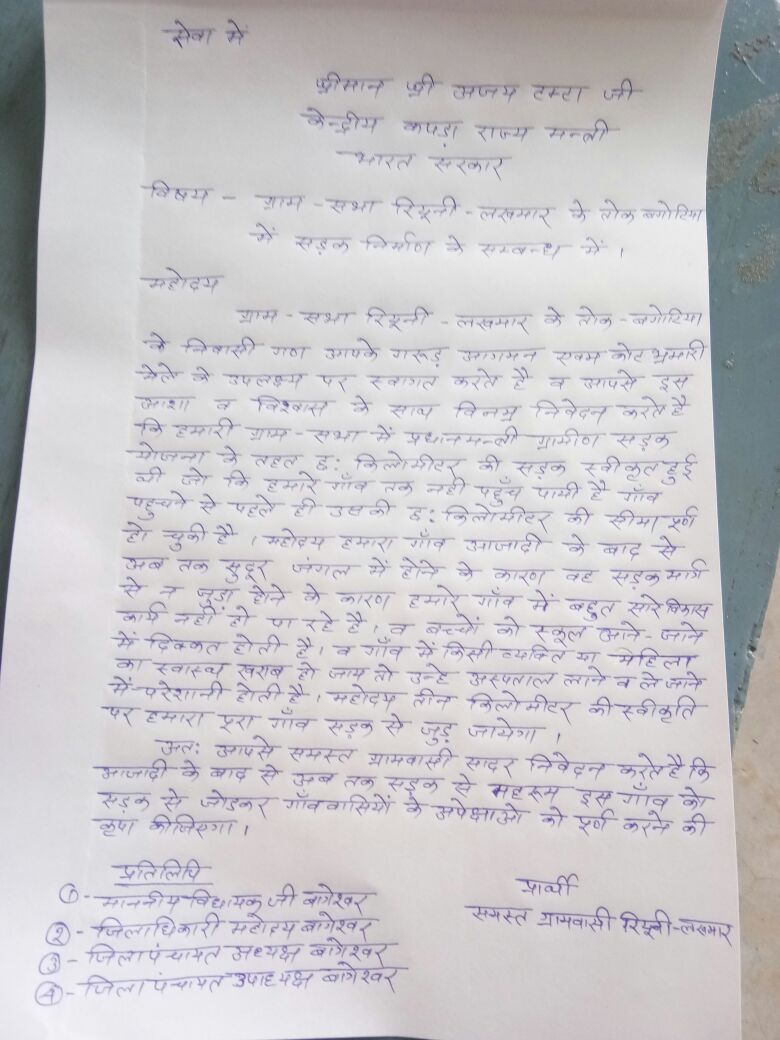 सेवा में
श्रीमान श्री अजय टम्टा जी
केन्द्रीय कपड़ा राज्य मन्त्री
भारत सरकार
विषय - ग्राम - सभा रियूनी - लखमार के तोक बगोटिया
में सड़क निर्माण के सम्बन्ध में ।
महोदय
ग्राम - सभा रियूनी - लखमार के तोक - बगोटिया
के निवासी गण आपके गरुड़ आगमन एवम कोट भ्रमारी
मेले के उपलक्ष्य पर स्वागत करते है व आपसे इस
आशा व विश्वास के साथ विनम्र निवेदन करते है
कि हमारी ग्राम - सभा में प्रधानमन्त्री ग्रामीण सड़क
योजना के तहत छ: किलोमीटर की सड़क स्वीकृत हुई
थी जो कि हमारे गाँव तक नही पहुँच पायी है गाँव
पहुचने से पहले ही उसकी छ: किलोमीटर की सीमा पूर्ण
हो चुकी है । महोदय हमारा गाँव आजादी के बाद से
अब तक सुदूर जंगल में होने के कारण वह सड़क मार्ग
से न जुड़ा होने के कारण हमारे गाँव में बहुत सारे विकास
कार्य नहीं हो पा रहे है । व बच्चों को स्कूल आने - जाने
में दिक्कत होती है । व गाँव में किसी व्यक्ति या महिला
का स्वास्थ्य खराब हो जाय तो उन्हे अस्पताल लाने व ले जाने
में परेशानी होती है । महोदय तीन किलोमीटर की स्वीकृति
पर हमारा पूरा गाँव सड़क से जुड़ जायेगा ।
अत: आपसे समस्त ग्रामवासी सादर निवेदन करते है कि
आजादी के बाद से अब तक सड़क से महरूम इस गाँव को
सड़क से जोडकर गाँववासियों के अपेक्षाओ को पूर्ण करने की
कृपा कीजिएगा ।
प्रतिलिपि
① - माननीय विधायक जी बागेश्वर
② - जिलाधिकारी महोदय बागेश्वर
③ - जिला पंचायत अध्यक्ष बागेश्वर
④ - जिला पंचायत उपाध्यक्ष बागेश्वर
प्रार्थी
समस्त ग्रामवासी रियूनी - लखमार